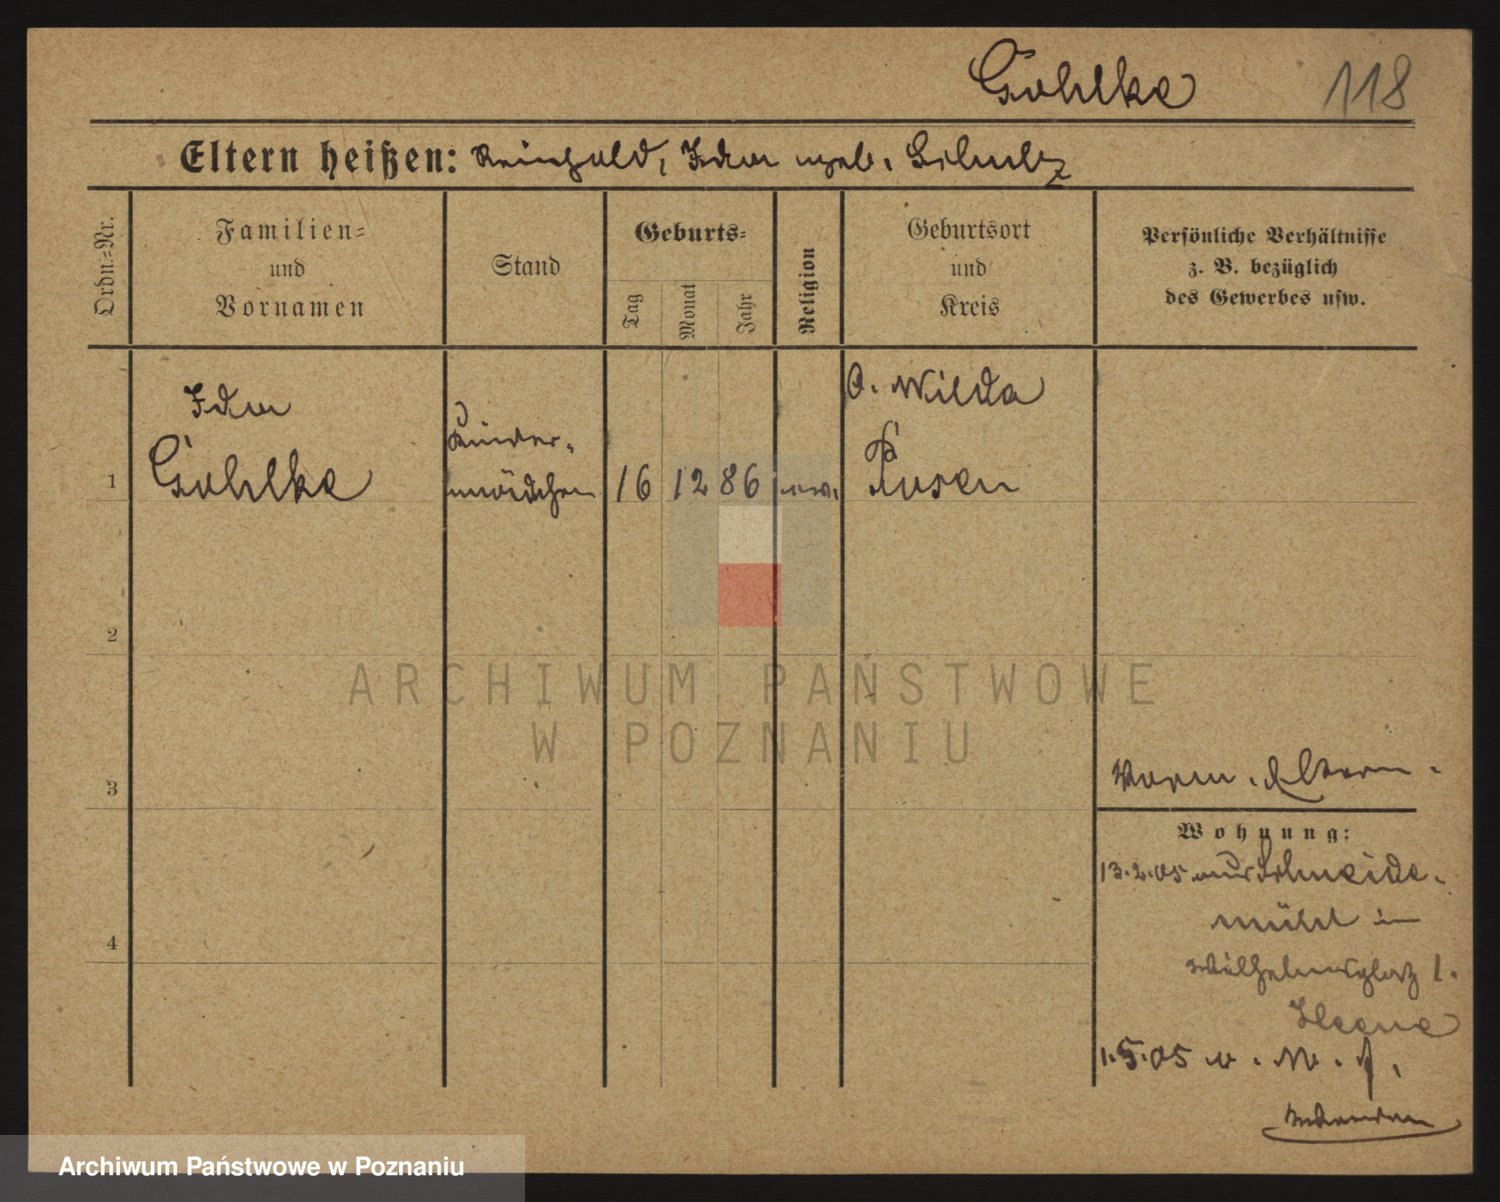 Gohlke 118
Eltern heißen: Reinhold, Ida geb. Schulz
Ordn.-Nr.
Familien-
und
Vornamen
Stand
Geburts-
Tag
Monat
Jahr
Religion
Geburtsort
und
Kreis
Persönliche Verhältnisse
z. B. bezüglich
des Gewerbes usw.
Ida
Gohlke
Kinder-
mädchen
1
16 12 86
ev.
O. Wilda
Posen
2
ARCHIWUM PAŃSTWOWE
W POZNANIU
3
Eltern.
Wohnung:
13.2.05 aus Schneide-
mühl in
Wilhelmsplatz 1.
4
1.5.05 v. M. f.
Archiwum Państwowe w Poznaniu